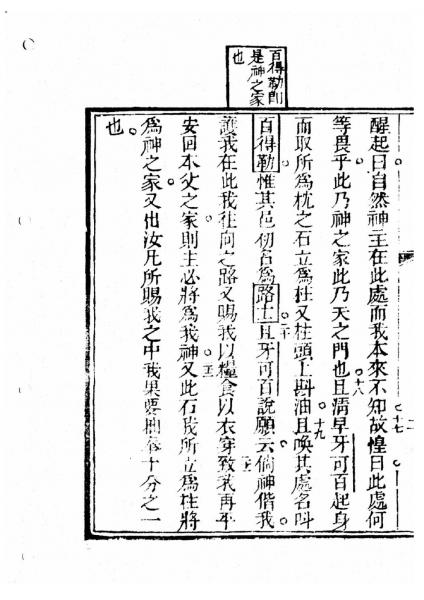 百得勒即
是神之家
也
醒起曰自然神主在此處而我本來不知故惶曰此處何
等畏乎此乃神之家此乃天之門也且清早牙可百起身
而取所為枕之石立為柱又柱頭上斟油且喚其處名呌
百得勒惟其邑初名為路士且牙可百說願云倘神偕我
護我在此我往向之路又賜我以糧食以衣穿致我再平
安回本父之家則主必將為我神又此石我所立為柱將
為神之家又由汝凡所賜我之中我果要抽 十分之一
也
十七
十八
十九
二十